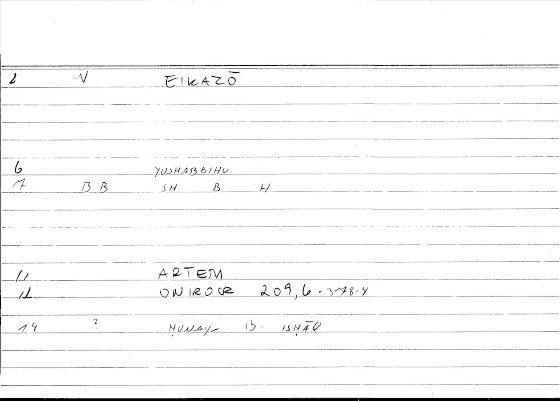 1 -V EIKAZŌ
6 YUSHABBIHU
7 BB SH B H
11 ARTEM
12 ONIROCR 209,6-378.4
14 ? ḤUNAYN B. ISḤĀQ